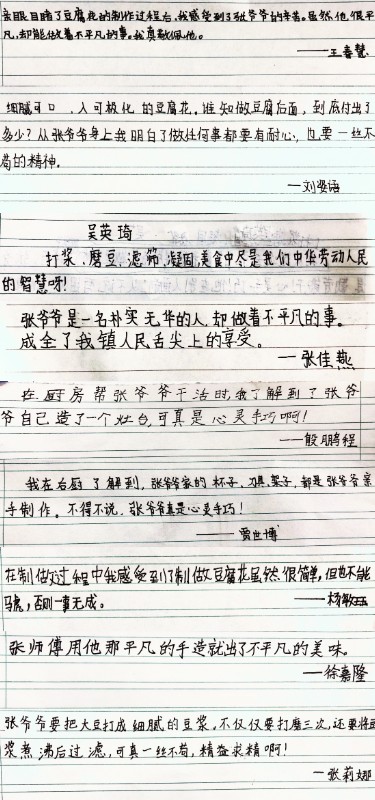 亲眼目睹了豆腐花的制作过程后,我感受到了张爷爷的辛苦。虽然他很平
凡,却能做着不平凡的事。我真敬佩他。
——王春慧
细腻可口、入可极化的豆腐花。谁知做豆腐后面,到底付出了
多少?从张爷爷身上我明白了做任何事都要有耐心,也要一丝不
苟的精神。
—刘婴语
吴英琦
打浆、磨豆、滤筛、凝固,美食中尽是我们中华劳动人民
的智慧呀!
张爷爷是一名朴实无华的人,却做着不平凡的事。
成全了我镇人民舌尖上的享受。
—张佳燕
在厨房帮张爷爷干活时,我了解到了张爷
爷自己造了一个灶台,可真是心灵手巧啊!
——殷鹏程
我在右厨了解到,张爷爷家的杯子,刀具,架子,都是张爷爷亲
手制作。不得不说,张爷爷真是心灵手巧!
——贾世博
在制做过程中我感受到了制做豆腐花虽然很简单,但也不能
马虎,否则一事无成。
——杨敏玉
张师傅用他那平凡的手造就出了不平凡的美味。
—徐嘉隆
张爷爷要把大豆打成细腻的豆浆。不仅仅要打磨三次,还要将豆
浆煮沸后过滤,可真一丝不苟,精益求精啊!
—张莉娜